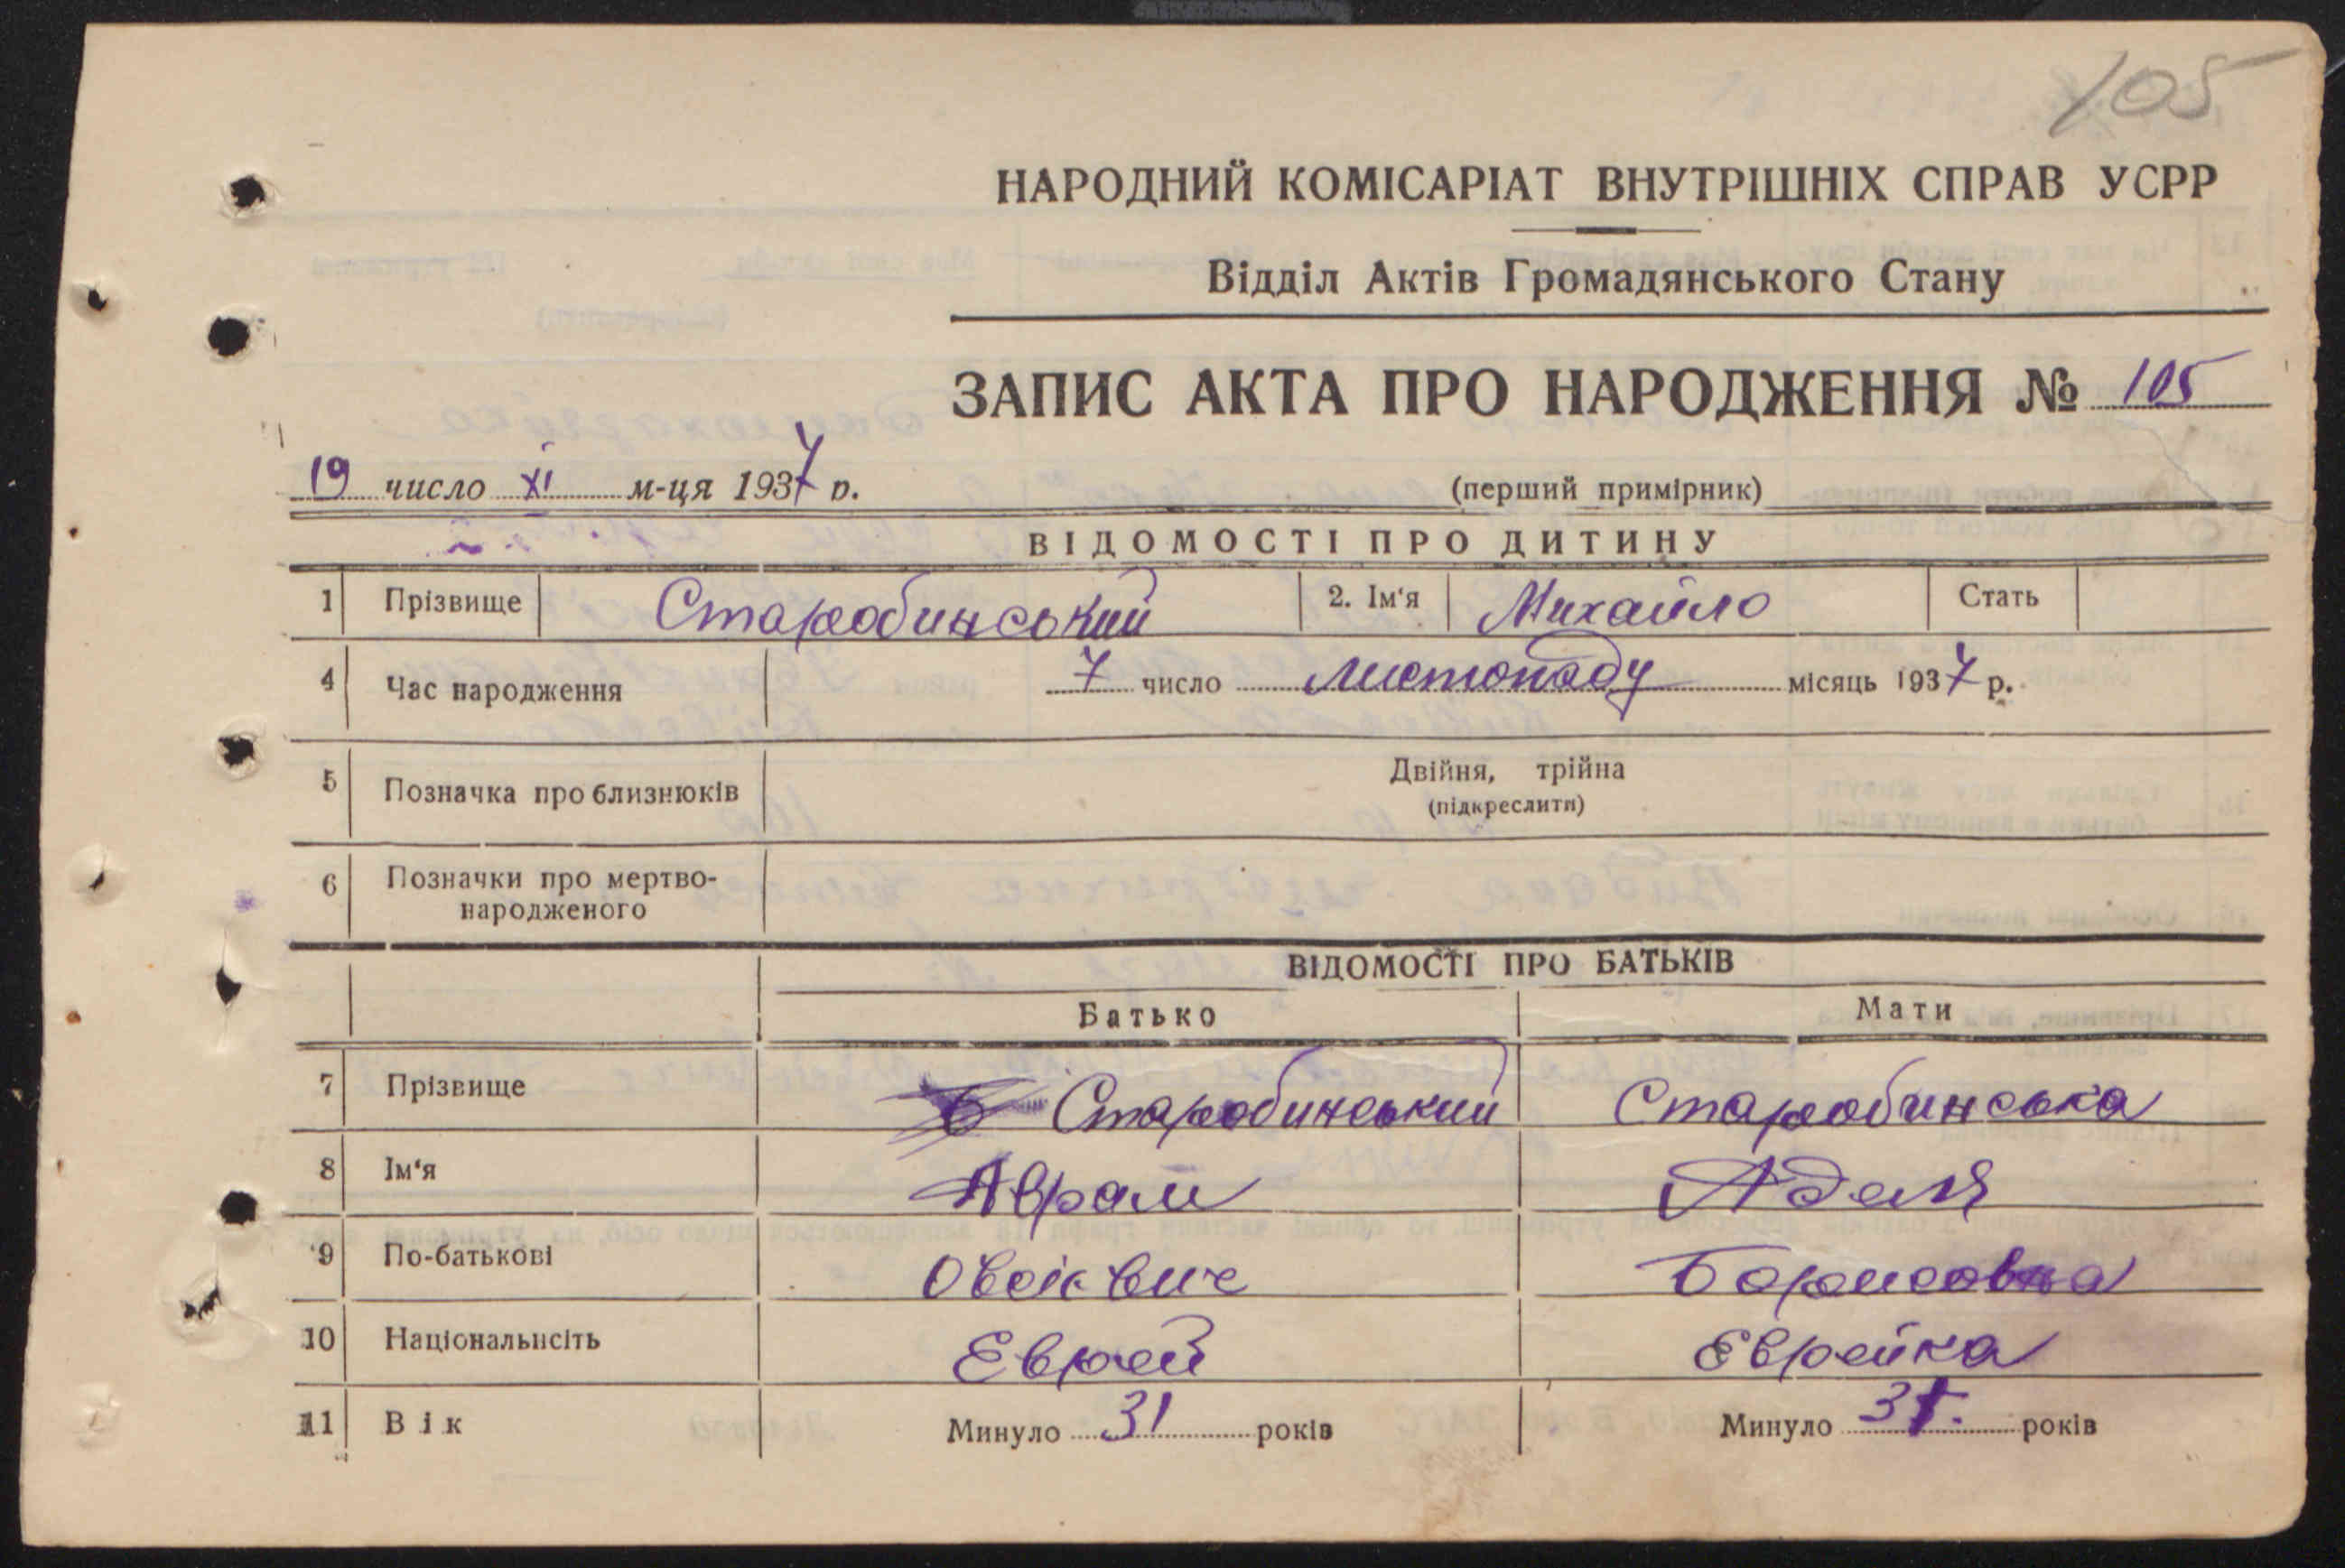 105
НАРОДНИЙ КОМІСАРІАТ ВНУТРІШНІХ СПРАВ УСРР
Відділ Актів Громадянського Стану
ЗАПИС АКТА ПРО НАРОДЖЕННЯ № 105
19 число XI м-ця 1937 р. (перший примірник)
ВІДОМОСТІ ПРО ДИТИНУ
1 Прізвище Старобинський 2. Ім'я Михайло Стать
4 Час народження 7 число листопаду місяць 1937 р.
5 Позначка про близнюків Двійня, трійна
(підкреслити)
6 Позначки про мертво-
народженого
ВІДОМОСТІ ПРО БАТЬКІВ
Батько Мати
7 Прізвище Старобинський Старобинська
8 Ім'я Аврам Аделя
9 По-батькові Борисовна
10 Національнсіть Еврей Еврейка
11 Вік Минуло 31 років Минуло років